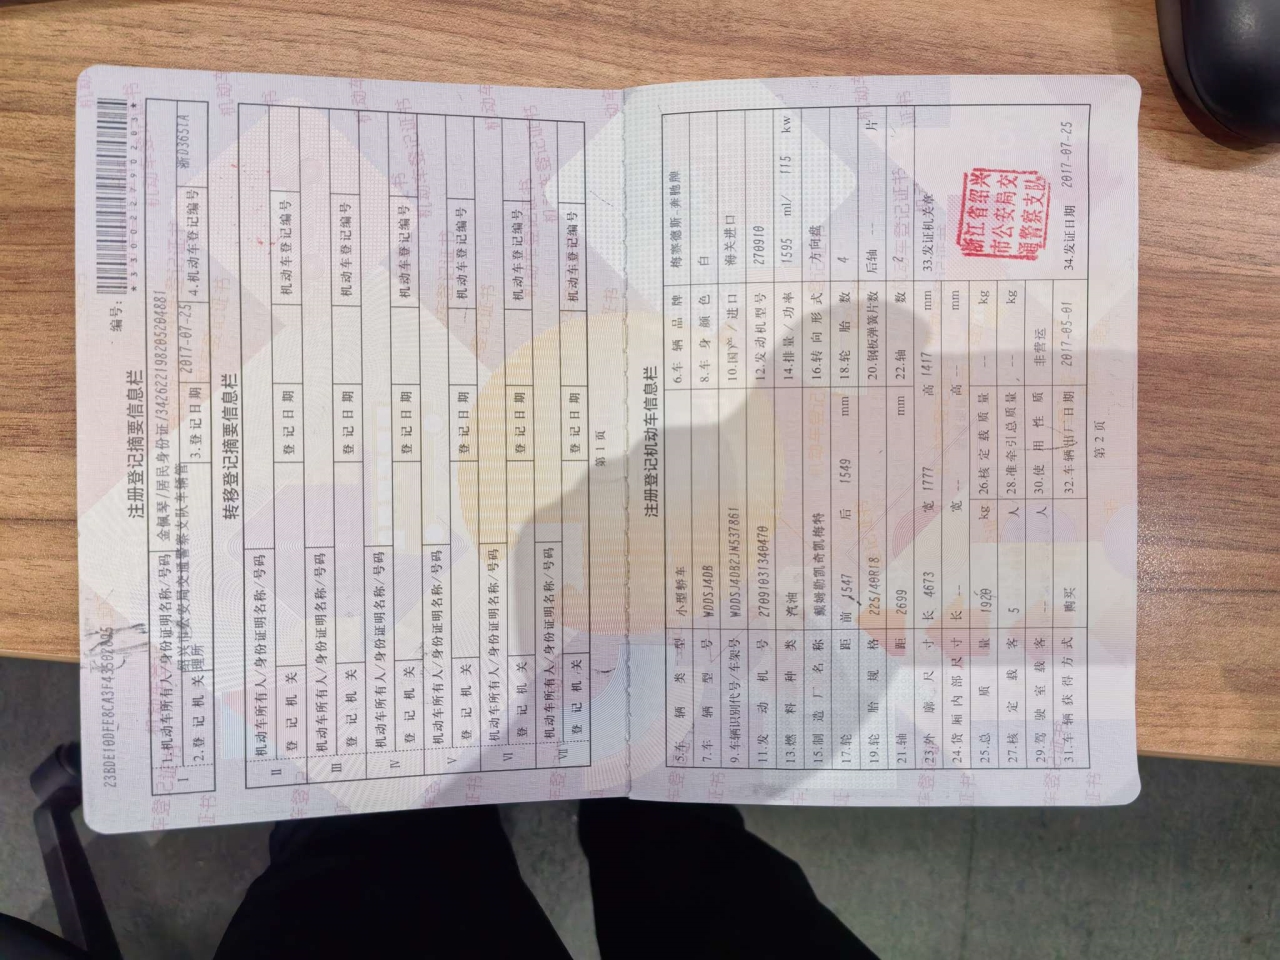 编号:
*330022790203*
注册登记摘要信息栏
Ⅰ 1.机动车所有人/身份证明名称/号码 金佩琴/居民身份证/342622198205204881
2.登记机关 绍兴市公安局交通警察支队车辆管理所 3.登记日期 2017-07-25 4.机动车登记编号 浙D365TA
转移登记摘要信息栏
Ⅱ 机动车所有人/身份证明名称/号码
登记机关 登记日期 机动车登记编号
Ⅲ 机动车所有人/身份证明名称/号码
登记机关 登记日期 机动车登记编号
Ⅳ 机动车所有人/身份证明名称/号码
登记机关 登记日期 机动车登记编号
Ⅴ 机动车所有人/身份证明名称/号码
登记机关 登记日期 机动车登记编号
Ⅵ 机动车所有人/身份证明名称/号码
登记机关 登记日期 机动车登记编号
Ⅶ 机动车所有人/身份证明名称/号码
登记机关 登记日期 机动车登记编号
第 1 页
注册登记机动车信息栏
5.车辆类型 小型轿车 6.车辆品牌 梅赛德斯-奔驰牌
7.车辆型号 WDDSJ4DB 8.车身颜色 白
9.车辆识别代号/车架号 WDDSJ4DB2JN537861 10.国产/进口 海关进口
11.发动机号 27091031340470 12.发动机型号 270910
13.燃料种类 汽油 14.排量/功率 1595 ml/ 115 kw
15.制造厂名称 戴姆勒凯奇凯梅特 16.转向形式 方向盘
17.轮距 前 1547 后 1549 mm 18.轮胎数 4
19.轮胎规格 225/40R18 20.钢板弹簧片数 后轴 -- 片
21.轴距 2699 mm 22.轴数 2
23.外廓尺寸 长 4673 宽 1777 高 1417 mm 33.发证机关章
24.货厢内部尺寸 长 -- 宽 -- 高 -- mm
浙江省绍兴
市公安局交
通警察支队
25.总质量 1920 kg 26.核定载质量 -- kg
27.核定载客 5 人 28.准牵引总质量 -- kg
29.驾驶室载客 -- 人 30.使用性质 非营运
31.车辆获得方式 购买 32.车辆出厂日期 2017-05-01 34.发证日期 2017-07-25
第 2 页